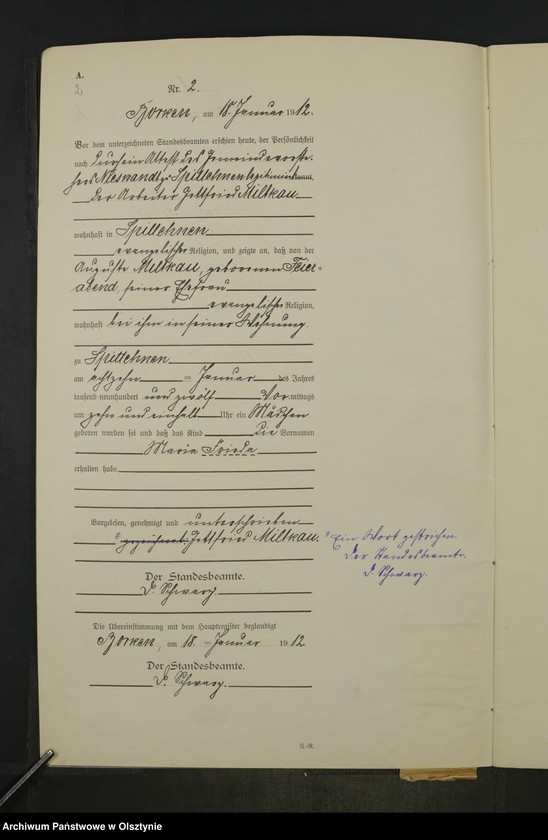 A.
2
Nr. 2.
Borken, am 18. Januar 1912.
Vor dem unterzeichneten Standesbeamten erschien heute, der Persönlichkeit
nach durch ein Attest des Gemeindevorste-
hers legitimirt
der Arbeiter Gottfried Miltkau
wohnhaft in Spittehnen
evangelischer Religion, und zeigte an, daß von der
Auguste Miltkau, geborenen Feier-
abend, seiner Ehefrau
evangelischer Religion,
wohnhaft bei ihm in seiner Wohnung
zu Spittehnen
am achtzehn ten Januar des Jahres
tausend neunhundert und zwölf Vor mittags
um zehn und einhalb Uhr ein Mädchen
geboren worden sei und daß das Kind die Vornamen
Maria Frieda
erhalten habe.
Vorgelesen, genehmigt und unterschrieben
gezeichnet: Gottfried Miltkau.
Ein Wort gestrichen.
Der Standesbeamte.
D. Schwarz.
Der Standesbeamte.
D. Schwarz.
Die Übereinstimmung mit dem Hauptregister beglaubigt
Borken, am 18. ten Januar 1912
Der Standesbeamte.
D. Schwarz.
Archiwum Państwowe w Olsztynie